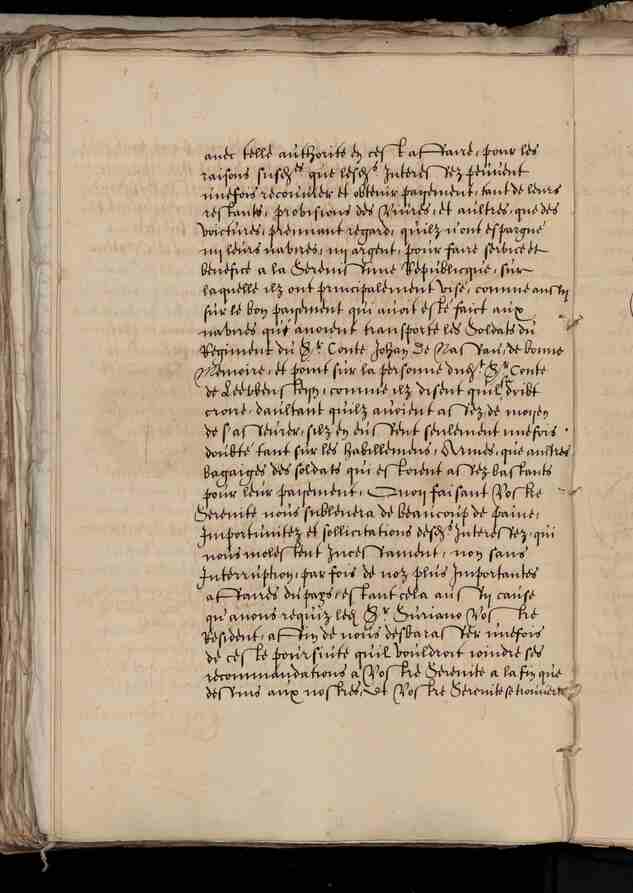 avec telle authorité en cest affaire, pour les
raisons susd.es que lesd.s Interessez peuvent
unefois recouvrer et obtenir payement, tant de leurs
restants, provisions des vivres, et aultres, que des
voictures, prennant regard, qu'ilz n'ont espargné
ni leurs navires, ni argent, pour faire service et
benefice a la Serenissime Republicque, sur
laquelle ilz ont principalement visé, comme aussy
sur le bon payement qui avoit esté faict aux
navires qui avoient transporté les Soldats du
Regiment du S.r Conte Johan de Nassau, de bonne
Memoire, et point sur la personne dud.t S.r Conte
de Leevensteyn, comme ilz disent qu'il doibt
croire, daultant qu'ilz avoient assez de moyen
de s'asseurer, silz en eussent seulement unefois
doubté tant sur les habillemens, Armes, que aultres
bagaiges des soldats qui estoient assez bastants
pour leur payement, Quoy faisant Vostre
Serenité nous sublevera de beaucoup de paine,
Importunitez et sollicitations desd.s Interessez, qui
nous molestent Incessament, non sans
Interruption, par fois de noz plus Importantes
affaires du pays, estant cela aussy cause
qu'avons requiz led. S.r Suriano Vostre
Resident, affin de nous desbarasser unefois
de ceste poursuite qu'il vouldroit joindre ses
recommandations a Vostre Serenité a la fin que
dessus aux nostres, Et Vostre Serenité se trouvera